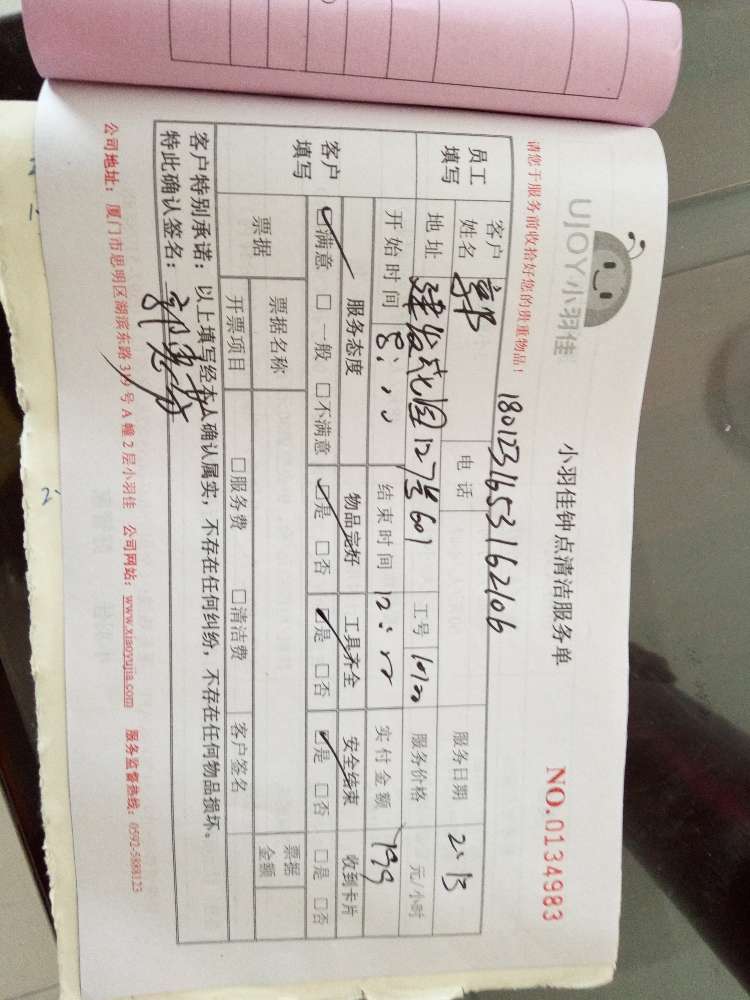 UJOY小羽佳
小羽佳钟点清洁服务单
NO.0134983
请您于服务前收拾好您的贵重物品！
1801231653162106
员工填写
客户姓名 郭 电话 服务日期 2.13
地址 建发花园127号601 工号 服务价格 元/小时
开始时间 8:00 结束时间 12:00 实付金额 199
客户填写
服务态度 物品完好 工具齐全 安全结束 收到卡片
☑满意 □一般 □不满意 ☑是 □否 ☑是 □否 ☑是 □否 □是 □否
票据 票据名称 票据金额
开票项目 □服务费 □清洁费 客户签名
客户特别承诺：以上填写经本人确认属实，不存在任何纠纷，不存在任何物品损坏。
特此确认签名：
公司地址：厦门市思明区湖滨东路319号A幢2层小羽佳 公司网站：www.xiaoyujia.com 服务监督热线：0592-5888123